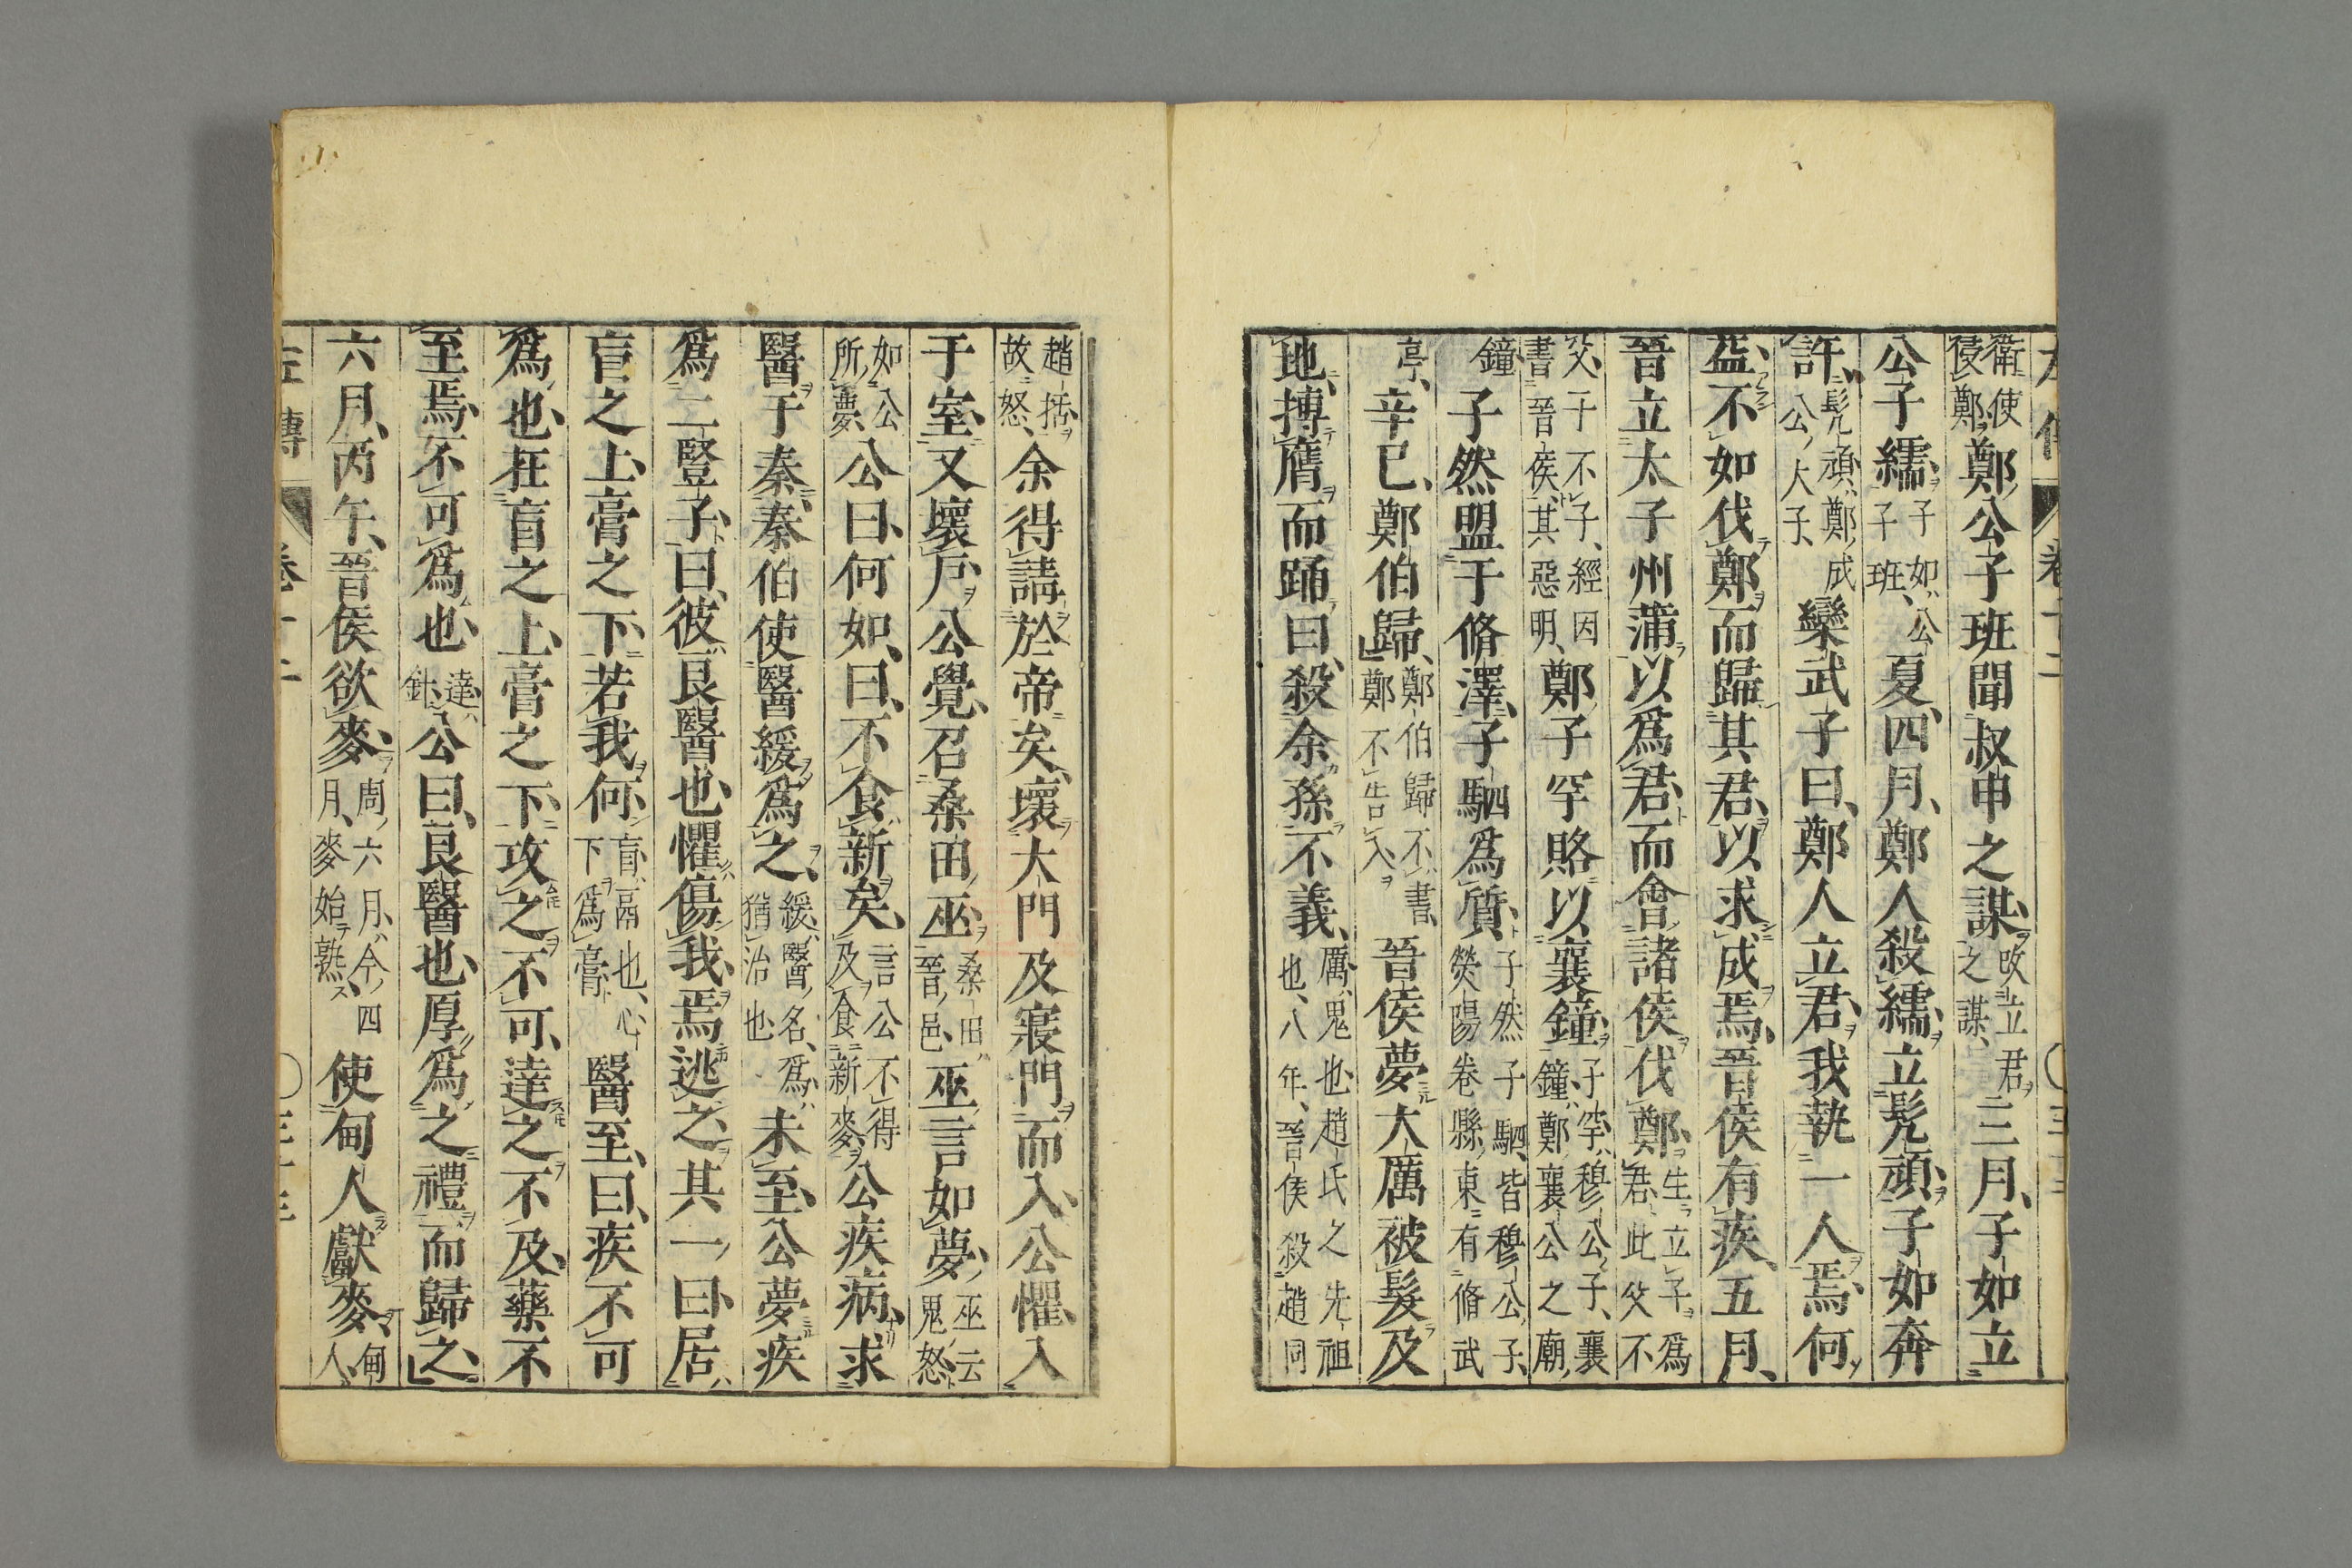 左傳 卷十二
衛使侵鄭、鄭公子班聞叔申之謀、改立君之謀、三月、子如立
公子繻、子如、公子班、夏、四月、鄭人殺繻、立髡頑、子如奔
許、髡頑、鄭成公大子、欒武子曰、鄭人立君、我執一人焉、何
益、不如伐鄭而歸其君、以求成焉、晉侯有疾、五月、
晉立太子州蒲以爲君、而會諸侯伐鄭、生立子爲君、此父不
父、子不子、經因書晉侯、其惡明、鄭子罕賂以襄鐘、子罕、穆公子、襄鐘、鄭襄公之廟
鐘、子然盟于脩澤、子駟爲質、子然子駟、皆穆公子、熒陽卷縣東有脩武
亭、辛巳、鄭伯歸、鄭伯歸不書、鄭不告入、晉侯夢大厲被髮及
地、搏膺而踊曰、殺余孫不義、厲鬼也、趙氏之先祖也、八年、晉侯殺趙同
趙括、故怒、余得請於帝矣、壞大門及寢門而入、公懼、入
于室、又壞戶、公覺、召桑田巫、桑田、晉邑、巫言如夢、巫云鬼怒、
如公所夢、公曰、何如、曰、不食新矣、言公不得及食新麥、公疾病、求
醫于秦、秦伯使醫緩爲之、緩、醫名、爲、猶治也、未至、公夢疾
爲二豎子、曰、彼良醫也、懼傷我、焉逃之、其一曰、居
肓之上、膏之下、若我何、肓、鬲也、心下爲膏、醫至、曰、疾不可
爲也、在肓之上、膏之下、攻之不可、達之不及、藥不
至焉、不可爲也、達、針、公曰、良醫也、厚爲之禮而歸之、
六月、丙午、晉侯欲麥、周六月、今四月、麥始熟、使甸人獻麥、甸人、
左傳 卷十二